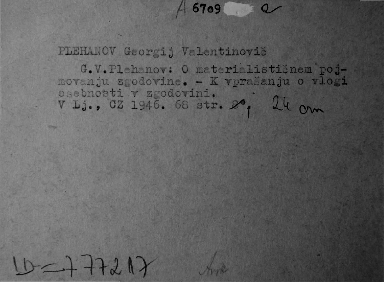 A 6709
PLEHANOV Georgij Valentinovič
G.V.Plehanov: O materialističnem poj-
movanju zgodovine. - K vprašanju o vlogi
osebnosti v zgodovini.
V Lj., CZ 1946. 68 str. 8°, 24 cm
ID=777217